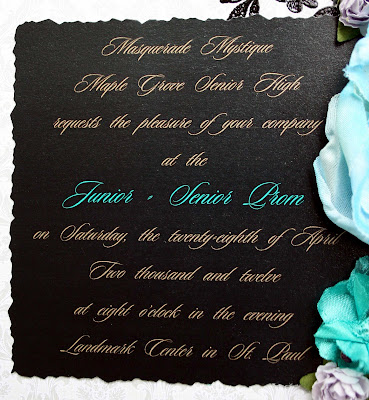 Masquerade Mystique
Maple Grove Senior High
requests the pleasure of your company
at the
Junior - Senior Prom
on Saturday, the twenty-eighth of April
Two thousand and twelve
at eight o'clock in the evening
Landmark Center in St. Paul